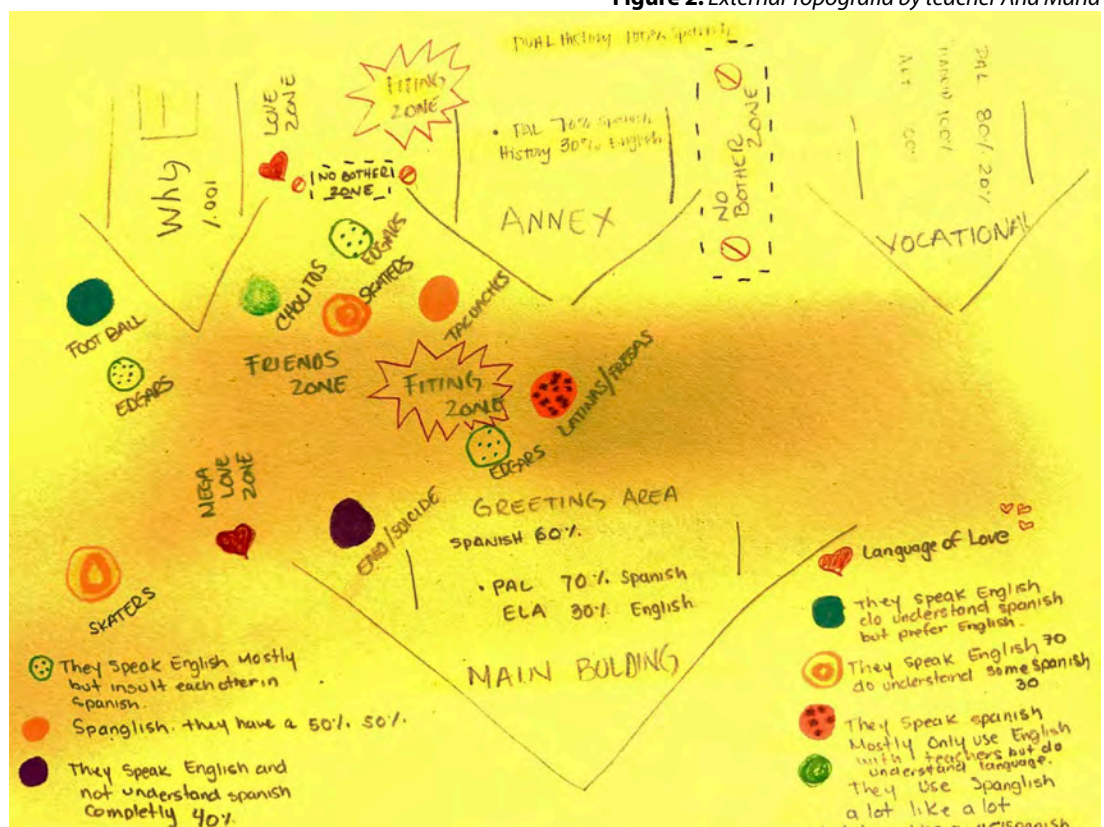 Figure 2. External Topografía by teacher Ana Maria
DUAL History 100% Spanish
FITING
ZONE
LOVE
ZONE
Why
100%
NO BOTHER
ZONE
• PAL 70% Spanish
History 30% English
ANNEX
NO
BOTHER
ZONE
PAL 80% 20%
100%
VOCATIONAL
EDGARS
CHOLITOS
SKATERS
TACUACHES
FOOT BALL
EDGARS
FRIENDS
ZONE
FITING
ZONE
LATINAS/FRESAS
EDGARS
MEGA
LOVE
ZONE
EMO/SUICIDE
GREETING AREA
SPANISH 60%.
• PAL 70% Spanish
ELA 30% English
MAIN BOLDING
SKATERS
They Speak English Mostly
but insult each otter in
spanish.
Spanglish. they have a 50% 50%.
They Speak English and
not understand spanish
completly 40%.
Language of Love
They speak English
do understand spanish
but prefer English.
They speak English 70
do understand some spanish
30
They speak spanish
Mostly Only use English
with teachers but do
understand language.
They use Spanglish
a lot like a lot